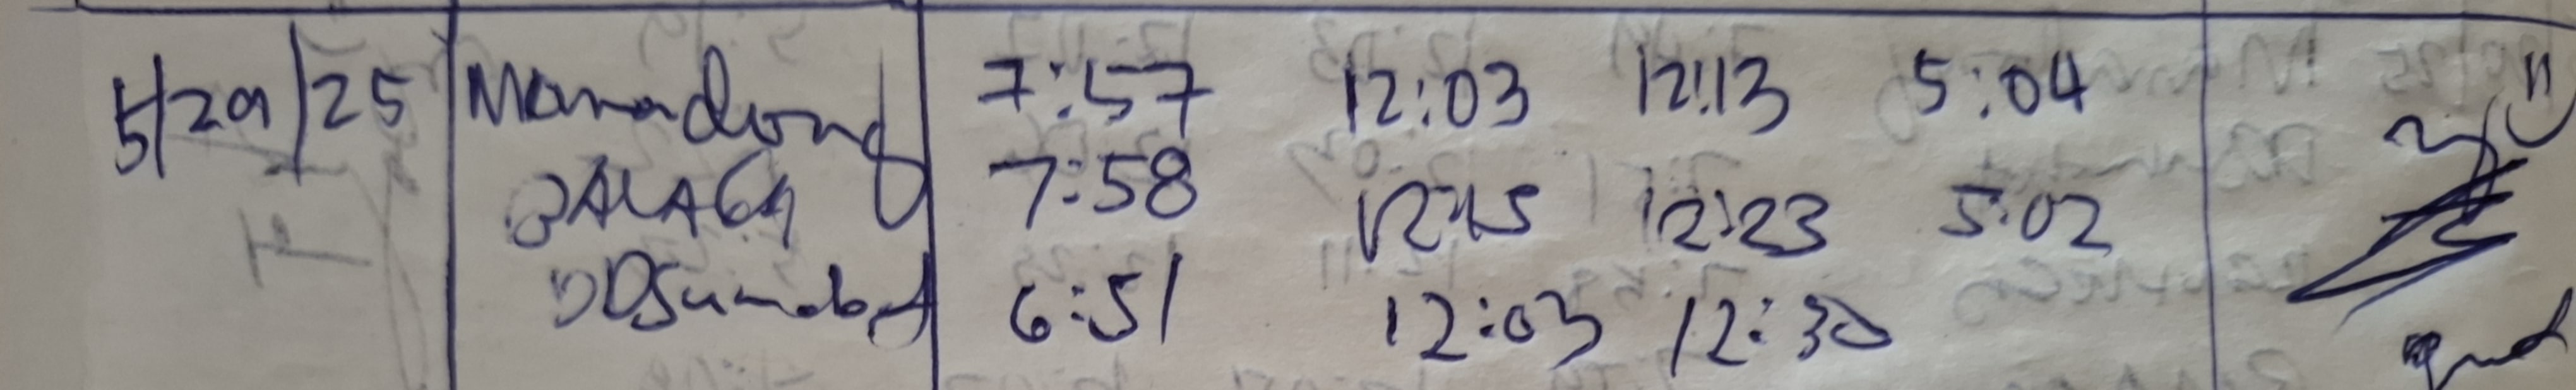 5/29/25 Manadong 7:57 12:03 12:13 5:04
BALAGA 7:58 12:15 12:23 5:02
DDSumabat 6:51 12:03 12:30